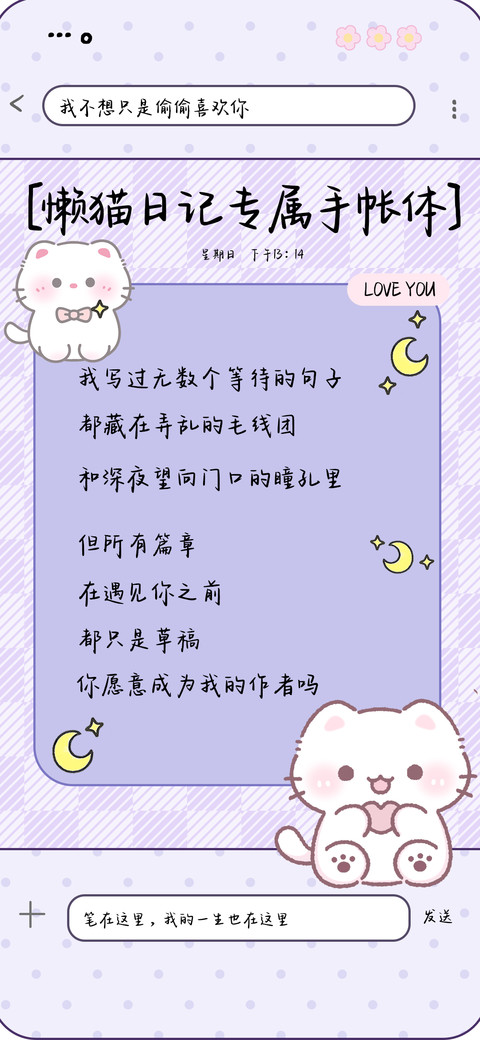 我不想只是偷偷喜欢你
[懒猫日记专属手帐体]
星期日 下午13:14
LOVE YOU
我写过无数个等待的句子
都藏在弄乱的毛线团
和深夜望向门口的瞳孔里
但所有篇章
在遇见你之前
都只是草稿
你愿意成为我的作者吗
笔在这里，我的一生也在这里
发送